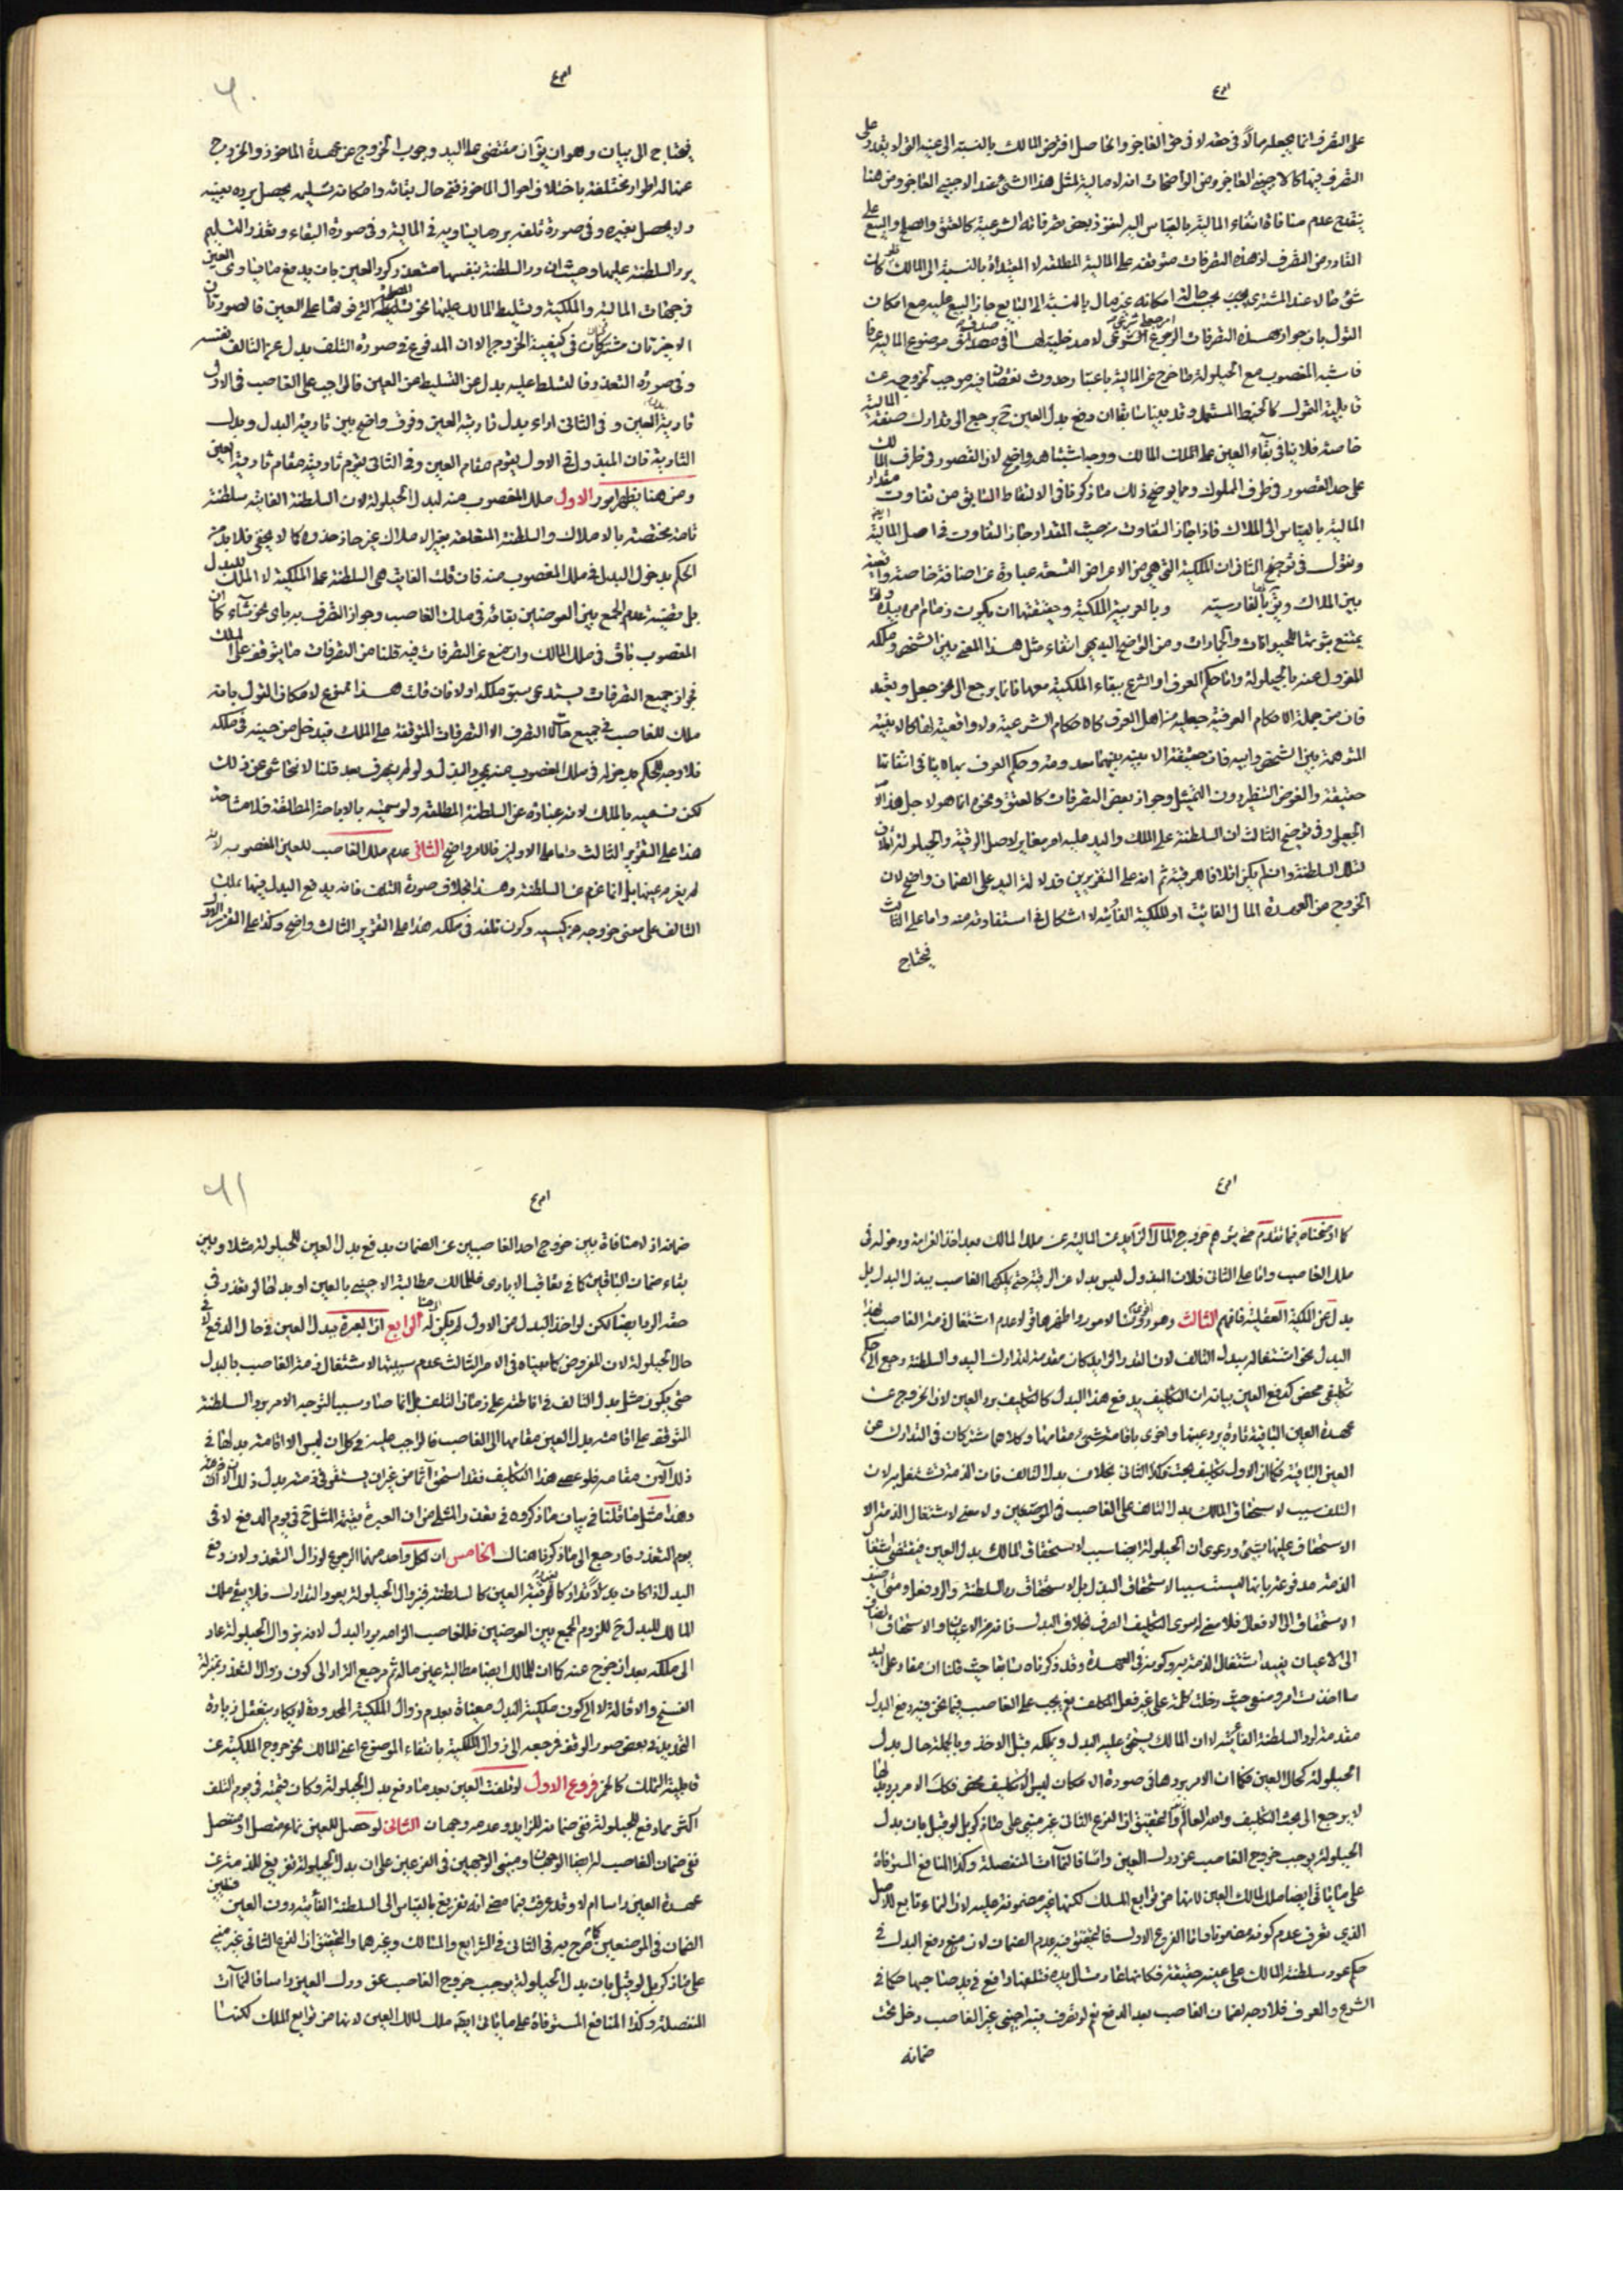 على التصرف انما يجعله مالاً فى حقه لا فى حق العاجز والحاصل افرض المالك بالنسبة الى عينه التى لا يقدر على
التصرف فيها كالاجنبى العاجز ومن الواضحات انه لا مالية لمثل هذا الشئ عند الاجنبى العاجز ومن هنا
ينقدح عدم منافاة انتفاء المالية بالقياس اليه لنفوذ بعض تصرفاته الشرعية كالعتق والصلح والبيع على
القادر من التصرف اذ هذه التصرفات متوقفة على المالية المطلقة لا المقيدة بالنسبة الى المالك فلو كان
شئ مالا عند المشترى بحسب حاله امكانه غير مال بالنسبة الى البايع جاز البيع عليه مع امكان
القول بان جواز هذه التصرفات لا مدخلية لها فى موضوع المالية عرفا
فاشبه المغصوب مع الحيلولة ما خرج عن المالية باعتبار حدوث نقصان فيه موجب لخروجه عن
قابلية التمول كالحنطة وقد بينا سابقا ان دفع بدل العين ح يرجع الى تدارك صفة المالية
خاصة فلا ينافى بقاء العين على ملك المالك ووجه اشبناهه واضح لان القصور فى طرف المالك
على حد القصور فى طرف المملوك ومما يوضح ذلك ما ذكرنا فى الالتفاط السابق من تفاوت مقدار
المالية بالقياس الى الملاك فاذا جاز التفاوت من حيث المقدار جاز التفاوت فى اصل المالية ايض
ونقول فى توضيح الثانى ان الملكية التى هى من الاعراض النسبية عبارة عن اضافة خاصة واقعية
بين الملاك ويق بالفارسية وبالعربية الملكية وحقيقتها ان يكون زمام امره بيده ولذا
يمتنع ثبوتها للحيوانات والجمادات ومن الواضح البديهى انتفاء مثل هذا المعنى بين الشخص وملكه
المعزول عنه بالحيلولة وانما حكم العرف او الشرع ببقاء الملكية معها فانما يرجع الى نحو جعل وتعبد
فان من جملة الاحكام العرفية جعلية من اهل العرف كالاحكام الشرعية ولا واقعية لها كالابنية
المتوهمة بين الشخص وابيه فان حقيقة الابنية بينهما معدومة وحكم العرف بها لا ينافى انتفائها
حقيقة والغرض التنظير دون التمثيل وجواز بعض التصرفات كالعتق ونحوه انما هو لاجل هذا الامر
الجعلى وفى توضيح الثالث ان السلطنة على الملك واليد عليه امر مغاير لاصل الرقبة والحيلولة اتلاف
لتلك السلطنة وان لم يكن اتلافا للرقبة ثم ان على التقريرين فدلالة اليد على الضمان واضح لان
الخروج من العهدة المال الفائت او الملكية الفائتة لا اشكال فى استفادته منه واما على الثالث
فيحتاج
فيحتاج الى بيان وهو ان يق ان مقتضى على اليد وجوب الخروج عن عهدة الماخوذ والخروج
عنها له اطوار مختلفة باختلاف احوال الماخوذ ففى حال بقائه وامكان تسليمه يحصل برده بعينه
ولا يحصل بغيره وفى صورة تلفه برد ما يساويه فى المالية وفى صورة البقاء وتعذر التسليم
برد السلطنة عليها وحيث ان رد السلطنة بنفسها متعذر كرد العين بات بدفع ما يساوى العين
فى جهات المالية والملكية وتسليط المالك عليها نحو تسليطه على العين فالصورتان
الاخيرتان مشتركتان فى كيفية الخروج الا ان المدفوع فى صورة التلف بدل عن التالف نفسه
وفى صورة التعذر فالتسلط عليه بدل عن التسليط عن العين فالواجب على الغاصب فى الاولى
تادية العين وفى الثانى اداء بدل تادية العين وفرق واضح بين تادية البدل وبدل
التادية فان المبذول فى الاول يقوم مقام العين وفى الثانى يقوم تاديته مقام تادية العين
ومن هنا يظهر امور الاول ملك المغصوب منه لبدل الحيلولة لان السلطنة الفائتة سلطنة
تامة مختصة بالاملاك والسلطنة المتعلقة بغير الاملاك غير حاذ حذوه كما لا يخفى فلا بد من
الحكم بدخول البدل فى ملك المغصوب منه فان قلت الفائت هى السلطنة على الملكية لا الملك للبدل
بل قضية عدم الجمع بين العوضين بقائه فى ملك الغاصب وجواز التصرف به باى نحو شاء كان
المغصوب باق فى ملك المالك وان منع عن التصرفات فيه قلنا من التصرفات ما يتوقف على الملك
فجواز جميع التصرفات يستدعى سبق ملكه اولا فان قلت هذا ممنوع لامكان القول بانه
ملك للغاصب فى جميع حالات التصرف الا التصرفات المتوقفة على الملك فيدخل من حينه فى ملكه
فلا وجه للحكم بدخوله فى ملك المغصوب منه بمجرد البذل ولو لم يتصرف بعد قلنا لا نتحاشى عن ذلك
لكن نسميه بالملك لانه عبارة عن السلطنة المطلقة ولو سميته بالاباحة المطلقة فلا مشاحة
هذا على التقرير الثالث واما على الاولين فالامر واضح الثانى عدم ملك الغاصب للعين المغصوبه لانه
لم يغرم عينها بل انما غرم عن السلطنة وهذا بخلاف صورة التلف فانه بدفع البدل فيها يملك
التالف على معنى خروجه من كيسه وكون تلفه فى ملكه هذا على التقرير الثالث واضح وكذا على التقرير الاول
كما اوضحناه فيما تقدم حتى يتوهم خروج المال الزايد عن المالية عن ملك المالك بعد اخذ الغرامة ودخوله فى
ملك الغاصب واما على الثانى فلان المبذول ليس بدلا عن الرقبة حتى يملكها الغاصب ببذل البدل بل
بدل عن الملكية العقلية فافهم الثالث وهو من الامور واظهرها عدم اشتغال ذمة الغاصب بهذا
البدل نحو اشتغاله ببدل التالف لان القدر الزايد كان مقدمة لتدارك اليد والسلطنة رجع الى حكم
تكليفى محض كدفع العين بيانه ان التكليف بدفع هذا البدل كالتكليف برد العين لان الخروج عن
عهدة العين الباقية تارة برد عينها واخرى باقامة شئ مقامها وكلاهما مشتركان فى التدارك عن
العين الباقية فكما ان الاول تكليف بحت فكذا الثانى بخلاف بدل التالف فان الذمة تشتغل به لان
التلف سبب لاستحقاق المالك بدل التالف على الغاصب فى الموضعين ولا معنى لاشتغال الذمة الا
الاستحقاق عليها بشئ ودعوى ان الحيلولة ايضا سبب لاستحقاق المالك بدل العين فيقتضى اشتغال
الذمة مدفوعة بانها ليست سببا لاستحقاق البدل بل لاستحقاق رد السلطنة والرد فعل ومتى اضيف
الاستحقاق الى الافعال فلا معنى له سوى التكليف الصرف بخلاف البدل فانه من الاعيان والاستحقاق المضاف
الى الاعيان يفيد اشتغال الذمة به وكونه فى العهدة وقد ذكرناه سابقا حيث قلنا ان مفاد على اليد
ما اخذت امر وضعى حيث دخلت كلمة على غير فعل المكلف نعم يجب على الغاصب فيما نحن فيه دفع البدل
مقدمة لرد السلطنة الفائتة لا ان المالك يستحق عليه البدل ويملكه قبل الاخذ وبالجملة حال بدل
الحيلولة كحال العين فكما ان الامر بردها فى صورة الامكان ليس الا تكليف محض فكذا الامر برد بدلها
لا يرجع الى بحث التكليف والله العالم والتحقيق ان الفرع الثانى غير مبنى على ما ذكر بل لو قيل بان بدل
الحيلولة يوجب خروج الغاصب عن درك العين راسا فالنماآت المنفصلة وكذا المنافع المستوفاة
على ما ياتى ايضا ملك لمالك العين لانها من توابع الملك لكنها غير مضمونة عليه لان النماء تابع للاصل
الذى تعرف عدم كونه مضمونا واما الفرع الاول فالتحقيق فيه عدم الضمان لان مع دفع البدل فى
حكم عود سلطنة المالك على عينه حقيقة فكانها عادت الى يده فتلفها واقع فى يد صاحبها حكما فى
الشرع والعرف فلا وجه لضمان الغاصب بعد الدفع نعم لو تصرف فيه اجنبى غير الغاصب دخل تحت
ضمانه
ضمانه اذ لا منافاة بين خروج احد الغاصبين عن الضمان بدفع بدل العين للحيلولة مثلا وبين
بقاء ضمان الباقين كما فى تعاقب الايادى فللمالك مطالبة الاجنبى بالعين او بدلها لو تعذر فى
حقه الرد ايضا لكن لو اخذ البدل من الاول لم يكن له الرابع ان العبرة ببدل العين فى حال الدفع لا فى
حال الحيلولة لان المفروض كما بيناه فى الامر الثالث عدم سببيتها لاشتغال ذمة الغاصب بالبدل
حتى يكون مثل بدل التالف فى اناطته على زمان التلف بل انما صار سببا لتوجه الامر برد السلطنة
المتوقفة على اقامة بدل العين مقامها الى الغاصب فالواجب عليه فى كل ان ليس الا اقامة بدلها فى
ذلك الآن مقامه فلو عصى هذا التكليف فقد استحق آثما من غير ان يستقر فى ذمته بدل ذلك الان
وهذا مثل ما قلنا فى بيان ما ذكروه فى تعذر المثلى من ان العبرة بقيمة المثل ح فى يوم الدفع لا فى
يوم التعذر فارجع الى ما ذكرنا هناك الخامس ان لكل واحد منهما الرجوع لو زال التعذر لان دفع
البدل اذا كان بدلا لتدارك العين كالسلطنة فبزوال الحيلولة يعود التدارك فلا يبقى ملك
المالك للبدل ح للزوم الجمع بين العوضين فللغاصب الزامه برد البدل لانه بزوال الحيلولة عاد
الى ملكه بعد ان خرج عنه كما ان للمالك ايضا مطالبة عين ماله ثم مرجع التراد الى كون زوال التعذر بمنزلة
الفسخ والاقالة لا الى كون ملكية البدل مغياة بعدم زوال الملكية المحدودة لا يكاد يتعقل زيادة
التحديد وبعض صور الوقف فرجعه الى زوال الملكية بانتفاء الموضوع اعنى المالك نحو خروج الملكية عن
قابلية التملك كالخمر فروع الاول لو تلفت العين بعد ما دفع بدل الحيلولة وكان قيمته فى يوم التلف
اكثر مما دفع للحيلولة ففى ضمانه للزايد وعدمه وجهان الثانى لو حصل للعين نماء متصل او منفصل
ففى ضمان الغاصب له ايضا الوجهان ومبنى الوجهين فى الفرعين على ان بدل الحيلولة تفريغ للذمة عن
عهدة العين راسا ام لا وقد عرفت بما مضى انه تفريغ بالقياس الى السلطنة الفائتة دون العين
الضمان فى الموضعين كما صرح به فى الثانى فى الشرايع والمسالك وغيرهما والتحقيق ان الفرع الثانى غير مبنى
على ما ذكر بل لو قيل بان بدل الحيلولة يوجب خروج الغاصب عن درك العين راسا فالنماآت
المنفصلة وكذا المنافع المستوفاة على ما ياتى ايضا ملك لمالك العين لانها من توابع الملك لكنها